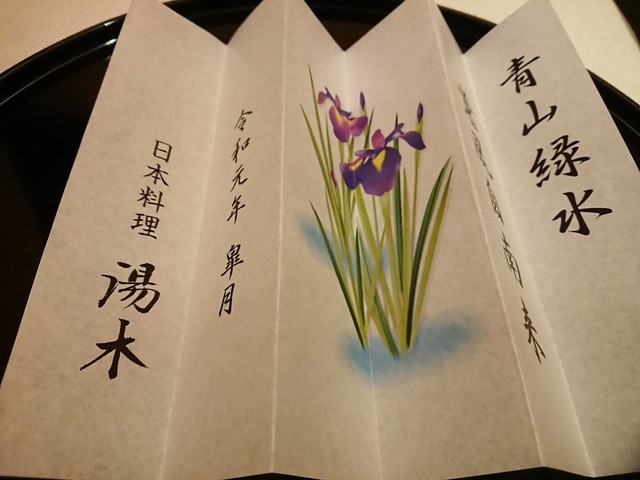 青山緑水
薫風自南来
令和元年 皐月
日本料理 湯木